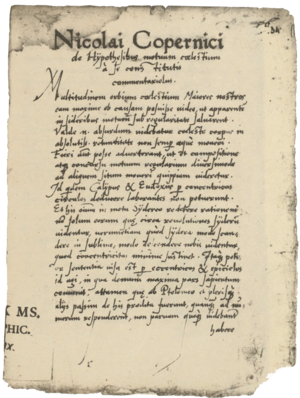 34
Nicolai Copernici
de Hypothesibus motuum cælestium
à se constitutis
commentariolus.
Multitudinem orbium cælestium Maiores nostros
eam maxime ob causam posuisse video, ut apparentem
in sideribus motum sub regularitate salvarent.
Valde n. absurdum videbatur cæleste corpus in
absolutiss. rotunditate non semp æque moveri.
Fieri aūt posse adverterant, ut et compositione
atq concursu motuum regularium diversimode
ad aliquem situm moveri quippiam videretur.
Id quidem Calippus & Eudoxus p concentricos
circulos deducere laborantes non potuerunt
Et his oīum in motu sidereo reddere rationem,
non solum eorum quæ circa revolutiones siderū
videntur, verumetiam quod sidera modo scandere
in sublime, modo descendere nobis videntur,
quod concentricitas minime sustinet. Itaq potior
sententia visa est p eccentricos & epiciclos
id agi, in qua demum maxima pars sapientum
convenit, attamen quæ a Ptolemeo et plerisq
aliis passim de his prodita fuerunt, quanq ad numerum
responderent, non parvam quoq videbant
habere
MS.